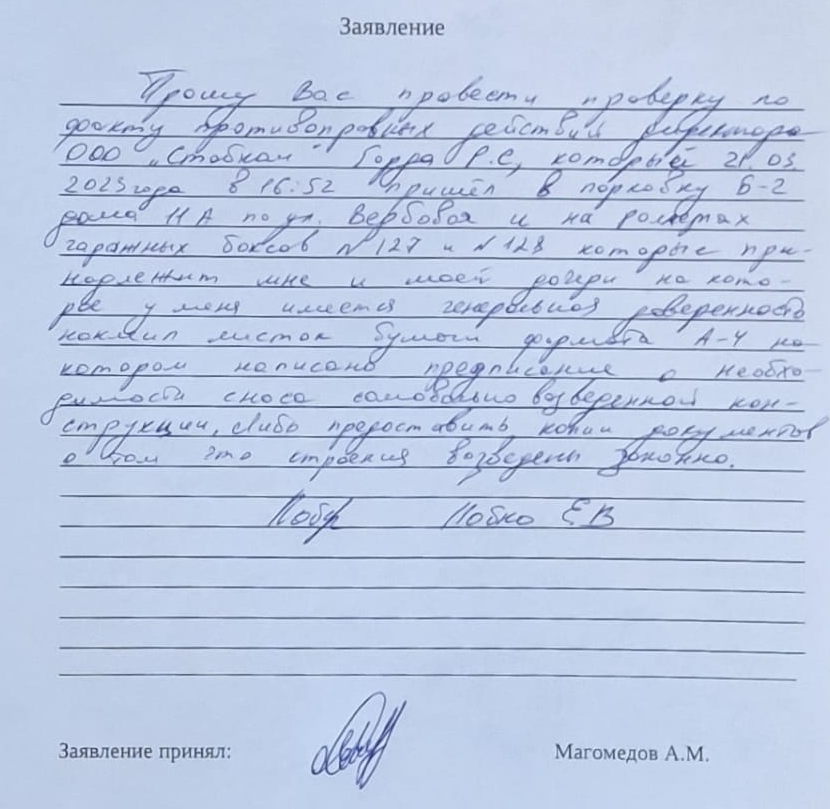 Заявление
Прошу Вас провести проверку по
факту противоправных действий директора
ООО "Стабкан" Горда Р.С, который 21.03.
2023 года в 16:52 пришёл в парковку Б-2
дома 11А по ул. Вербовая и на ролетах
гаражных боксов №127 и №128 которые при-
надлежит мне и моей дочери на кото-
рые у меня имеется генеральная доверенность
наклеил листок бумаги формата А-4 на
котором написано предписание о необхо-
димости сноса самовольно возведенной кон-
струкции, либо предоставить копии документов
о том что строения возведены законно.
Е В
Заявление принял:
Магомедов А.М.